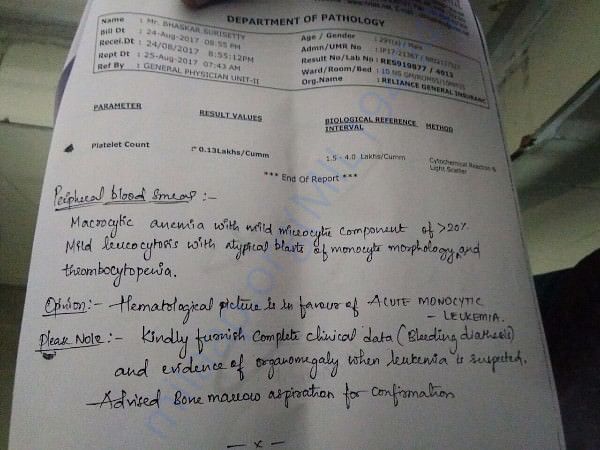 DEPARTMENT OF PATHOLOGY
Name : Mr. BHASKAR SURISETTY
Bill Dt : 24-Aug-2017 08:55 PM
Recei.Dt : 24/08/2017 8:55:12PM
Rept Dt : 25-Aug-2017 07:43 AM
Ref By : GENERAL PHYSICIAN UNIT-II
Age / Gender : / Male
Admn/UMR No :
Result No/Lab No : RES919877 / 4013
Ward/Room/Bed :
Org.Name : RELIANCE GENERAL INSURANC
PARAMETER RESULT VALUES BIOLOGICAL REFERENCE INTERVAL METHOD
Platelet Count 0.13Lakhs/Cumm 1.5 - 4.0 Lakhs/Cumm Cytochemical Reaction &
Light Scatter
*** End Of Report ***
Peripheral blood smear :-
Macrocytic anemia with mild microcytic component of >20%
Mild leucocytosis with atypical blasts of monocyte morphology and
thrombocytopenia.
Opinion:- Hematological picture is in favour of ACUTE MONOCYTIC
- LEUKEMIA.
Please Note :- Kindly furnish complete clinical data (Bleeding diathesis)
and evidence of organomegaly when leukemia is suspected.
- Advised Bone marrow aspiration for confirmation
- x -